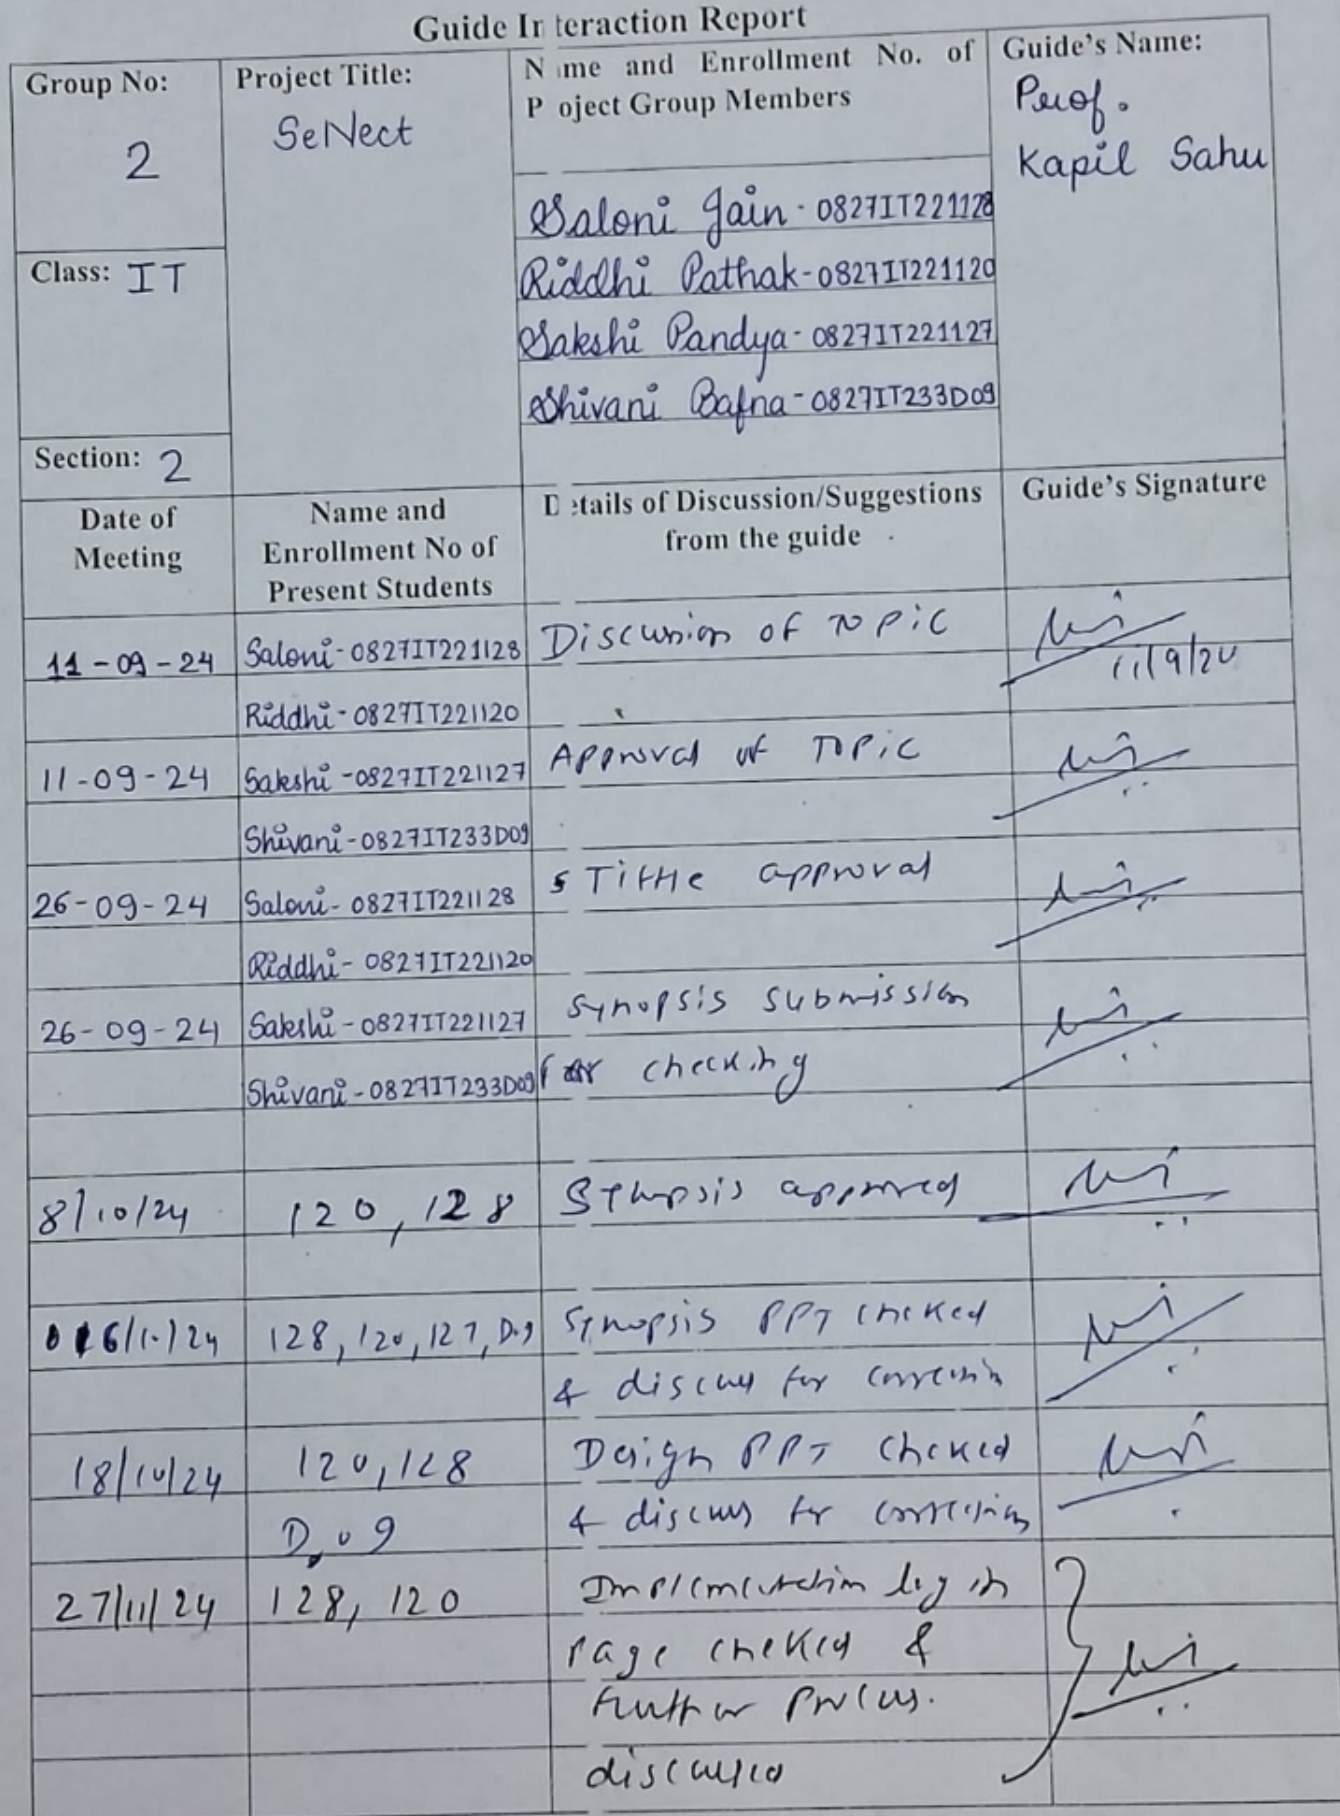 Guide Interaction Report
Group No: 2
Project Title: SeNect
Name and Enrollment No. of
Project Group Members
Saloni Jain - 0827IT221128
Riddhi Pathak - 0827IT221120
Sakshi Pandya - 0827IT221127
Shivani Bafna - 0827IT233D09
Guide's Name:
Prof.
Kapil Sahu
Class: IT
Section: 2
Date of
Meeting
Name and
Enrollment No of
Present Students
Details of Discussion/Suggestions
from the guide
Guide's Signature
11-09-24 Saloni - 0827IT221128 Discussion of Topic 11/9/24
Riddhi - 0827IT221120
11-09-24 Sakshi - 0827IT221127 Approval of Topic
Shivani - 0827IT233D09
26-09-24 Saloni - 0827IT221128 Tittle approval
Riddhi - 0827IT221120
26-09-24 Sakshi - 0827IT221127 Synopsis submission
Shivani - 0827IT233D09 for checking
8/10/24 120, 128 Synopsis approved
16/10/24 128, 120, 127, D09 Synopsis PPT cheked
& discuss for correction
18/10/24 120, 128 Design PPT cheked
D09 & discuss for correction
27/11/24 128, 120 Implementation log in
page cheked &
further
discussed